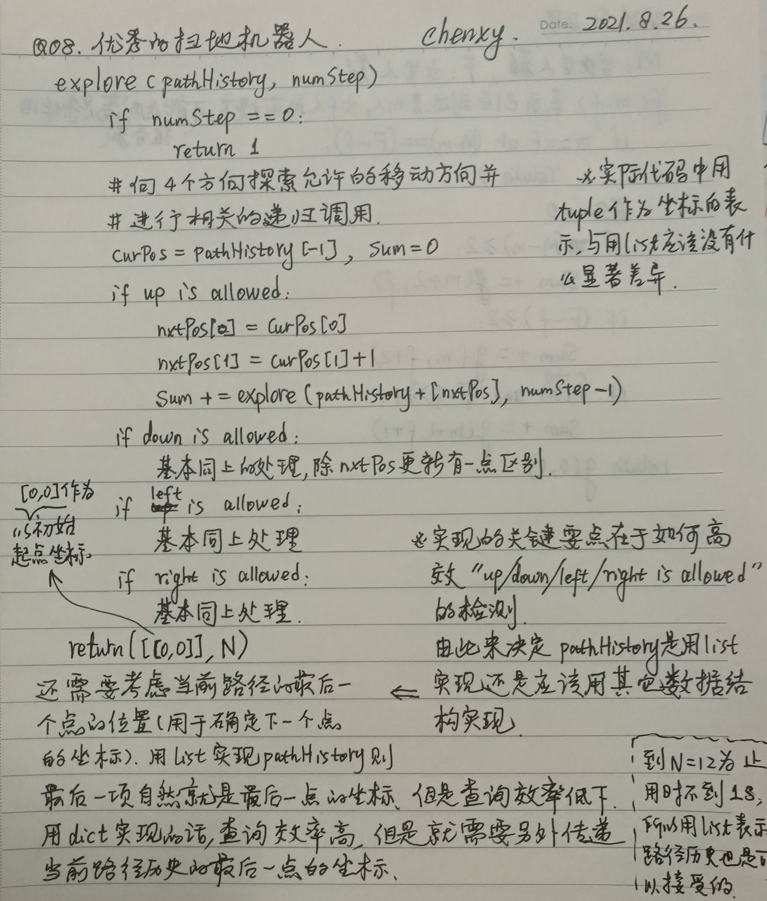 Q08. 优秀的扫地机器人. chenxy. Date. 2021.8.26.
explore (pathHistory, numStep)
if numStep == 0:
return 1
# 向4个方向探索允许的移动方向并
# 进行相关的递归调用.
curPos = pathHistory[-1], sum=0
※实际代码中用
tuple作为坐标的表
示,与用list应该没有什
么显著差异.
if up is allowed:
nxtPos[0] = curPos[0]
nxtPos[1] = curPos[1]+1
sum += explore (pathHistory+[nxtPos], numStep-1)
if down is allowed:
基本同上的处理,除nxtPos更新有一点区别.
if left is allowed:
基本同上处理
if right is allowed:
基本同上处理.
return([[0,0]], N)
[0,0]作为
初始
起点坐标
※实现的关键要点在于如何高
效"up/down/left/right is allowed"
的检测.
由此来决定pathHistory是用list
实现还是应该用其它数据结
构实现
还需要考虑当前路径的最后一
个点的位置(用于确定下一个点
的坐标). 用list实现pathHistory则
最后一项自然就是最后一点的坐标、但是查询效率低下.
用dict实现的话,查询效率高,但是就需要另外传递
当前路径历史的最后一点的坐标.
到N=12为止
用时不到1s,
所以用list表示
路径历史也是可
以接受的.